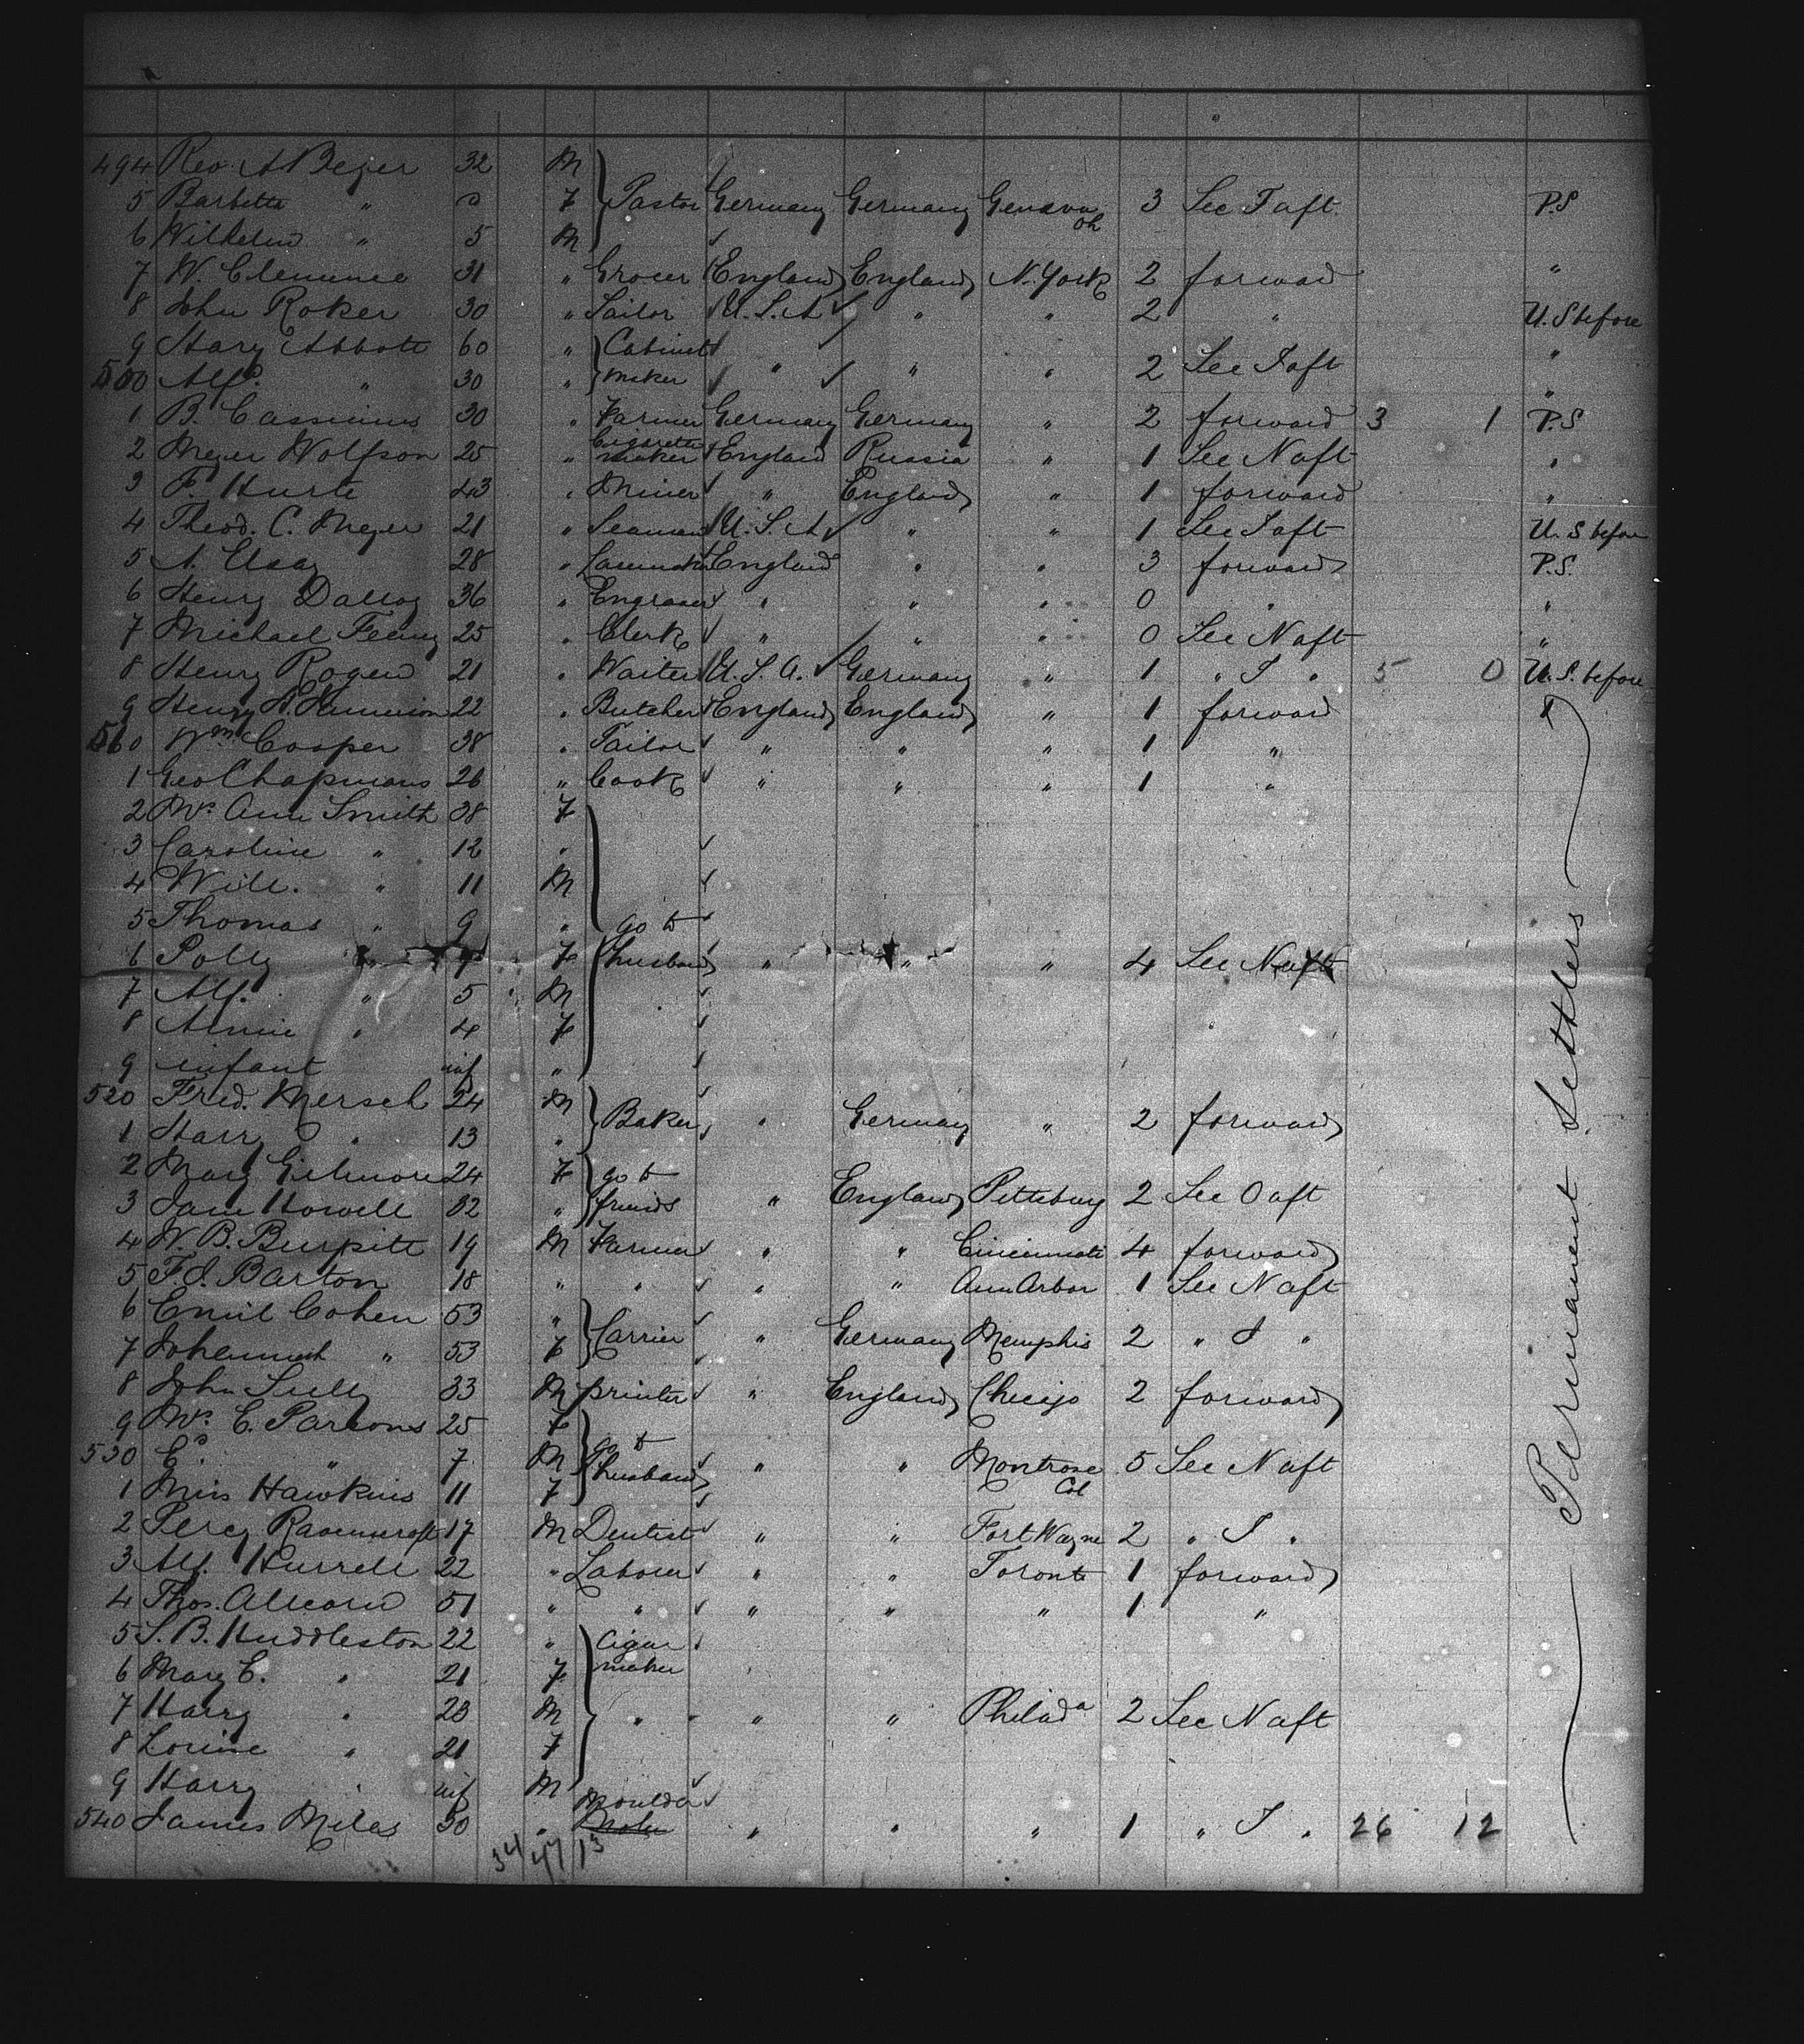 494 Rev. A Beyer 32 M
5 Barbetta " 7 Pastor Germany Germany Geneva Oh 3 Sec T aft. P.S
6 Wilhelm " 5 M
7 W. Clemmce 31 " Grocer England England N. York 2 forward "
8 John Roker 30 " Sailor U.S.A " " 2 " U. S before
9 Harry Abbott 60 " Cabinet "
500 Alf. " 30 " maker " " " 2 Sec T aft "
1 B. Cassimus 30 " Farmer Germany Germany " 2 forward 3 1 P.S
2 Meyer Wolfson 25 " Cigarette maker England Russia " 1 Sec N aft "
3 F. Hurte 43 " Miner " England " 1 forward "
4 Theod. C. Meyer 21 " Seaman U.S.A " " 1 Sec T aft U. S before
5 A. 28 " England " " 3 forward P.S.
6 Henry 36 " Engraver " " " 0 " "
7 Michael 25 " Clerk " " " 0 Sec N aft "
8 Henry Rogen 21 " Waiter U.S.A. Germany " 1 " T " 5 0 U.S. before
9 Henry 22 " Butcher England England " 1 forward
510 Wm Cooper 38 " Tailor " " " 1 "
1 Geo Chapman 26 " Cook " " " 1 "
2 Mrs Ann Smith 38 F
3 Caroline " 12 "
4 Will. " 11 M
5 Thomas " 9 " go to
6 Polly " 7 F husband " " " 4 Sec N aft
7 Alf. " 5 M
8 Annie " 4 F
9 infant inf "
520 Fred. Mersch 24 M Baker " Germany " 2 forward
1 Harry " 13 "
2 Mary Gilmore 24 F go to
3 Jane Howell 32 " friends " England Pittsburg 2 Sec O aft
4 W. B. Burpitt 19 M Farmer " " Cincinnati 4 forward
5 F. J. Barton 18 " " " " Ann Arbor 1 Sec N aft
6 Emil Cohen 53 " Carrier " Germany Memphis 2 " T "
7 " 53 F
8 John Sully 33 M printer " England Chicago 2 forward
9 Mrs E. Parsons 25 F go to
530 E. " 7 M husband " " Montrose Col 5 Sec N aft
1 Miss Hawkins 11 F
2 Percy Ravenscroft 17 M Dentist " " Fort Wayne 2 " T "
3 Alf. Hurrell 22 " Laborer " " Toronto 1 forward
4 Thos. Allcorn 51 " " " " " 1 "
5 S. B. Huddleston 22 " Cigar
6 Mary E. " 21 F maker
7 Harry " 23 M " " " Philada 2 Sec N aft
8 Louise " 21 F
9 Harry " inf M
540 James Miles 30 " Moulder " " " 1 " T " 26 12
34 47 13
Permanent Settlers